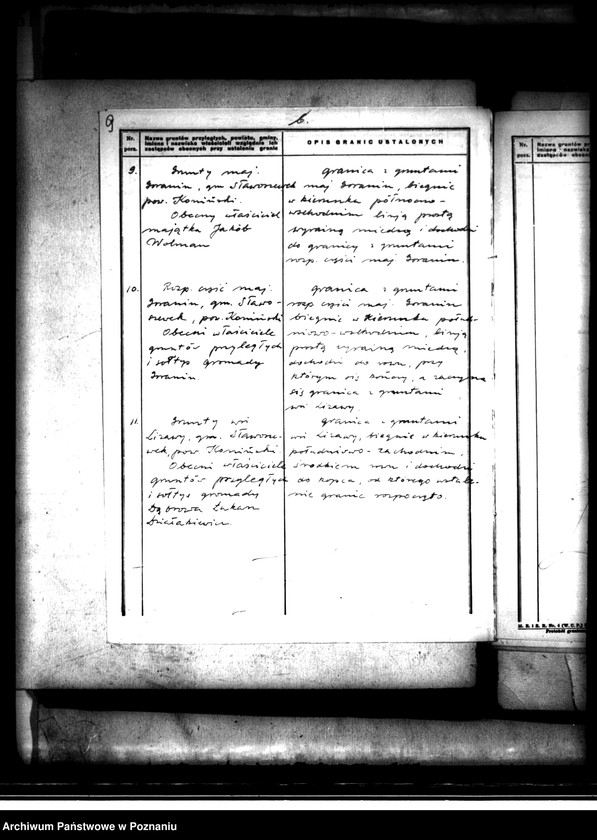 9
6.
Nr. porz.
Nazwa gruntów przyległych, powiatu, gminy,
imiona i nazwiska właścicieli względnie ich
zastępców obecnych przy ustalaniu granic
OPIS GRANIC USTALONYCH
9.
Grunty maj.
Goranin, gm. Sławoszewek
pow. Koniński.
Obecny właściciel
majątka Jakób
Wolman
granica z gruntami
maj Goranin, biegnie
w kierunku północno-
wschodnim linją prostą
wyraźną miedzą i dochodzi
do granicy z gruntami
rozp. części maj. Goranin.
10.
Rozp. część maj.
Goranin, gm. Sławo-
szewek, pow. Koniński
Obecni właściciele
gruntów przyległych
i sołtys gromady
Goranin.
granica z gruntami
rozp części maj. Goranin
biegnie w kierunku połud-
niowo-wschodnim, linją
prostą wyraźną miedzą,
dochodzi do rowu, przy
którym się kończy, a zaczyna
się granica z gruntami
wsi Lizawy.
11.
Grunty wsi
Lizawy, gm. Sławosze-
wek, pow. Koniński
Obecni właściciele
gruntów przyległych
i sołtys gromady
Dąbrowa Łukasz
granica z gruntami
wsi Lizawy, biegnie w kierunku
południowo-zachodnim,
środkiem rowu i dochodzi
do kopca, od którego ustale-
nie granic rozpoczęto.
Nr. porz.
Nazwa gruntów
imiona i nazwiska
zastępców obecnych
Archiwum Państwowe w Poznaniu